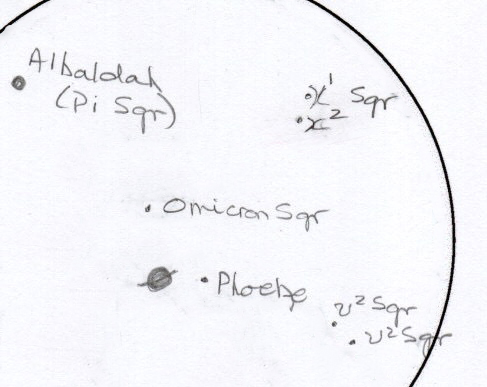 Albaldah
(Pi Sgr)
x¹ Sgr
x²
Omicron Sgr
Phoebe
ν² Sgr
ν² Sgr